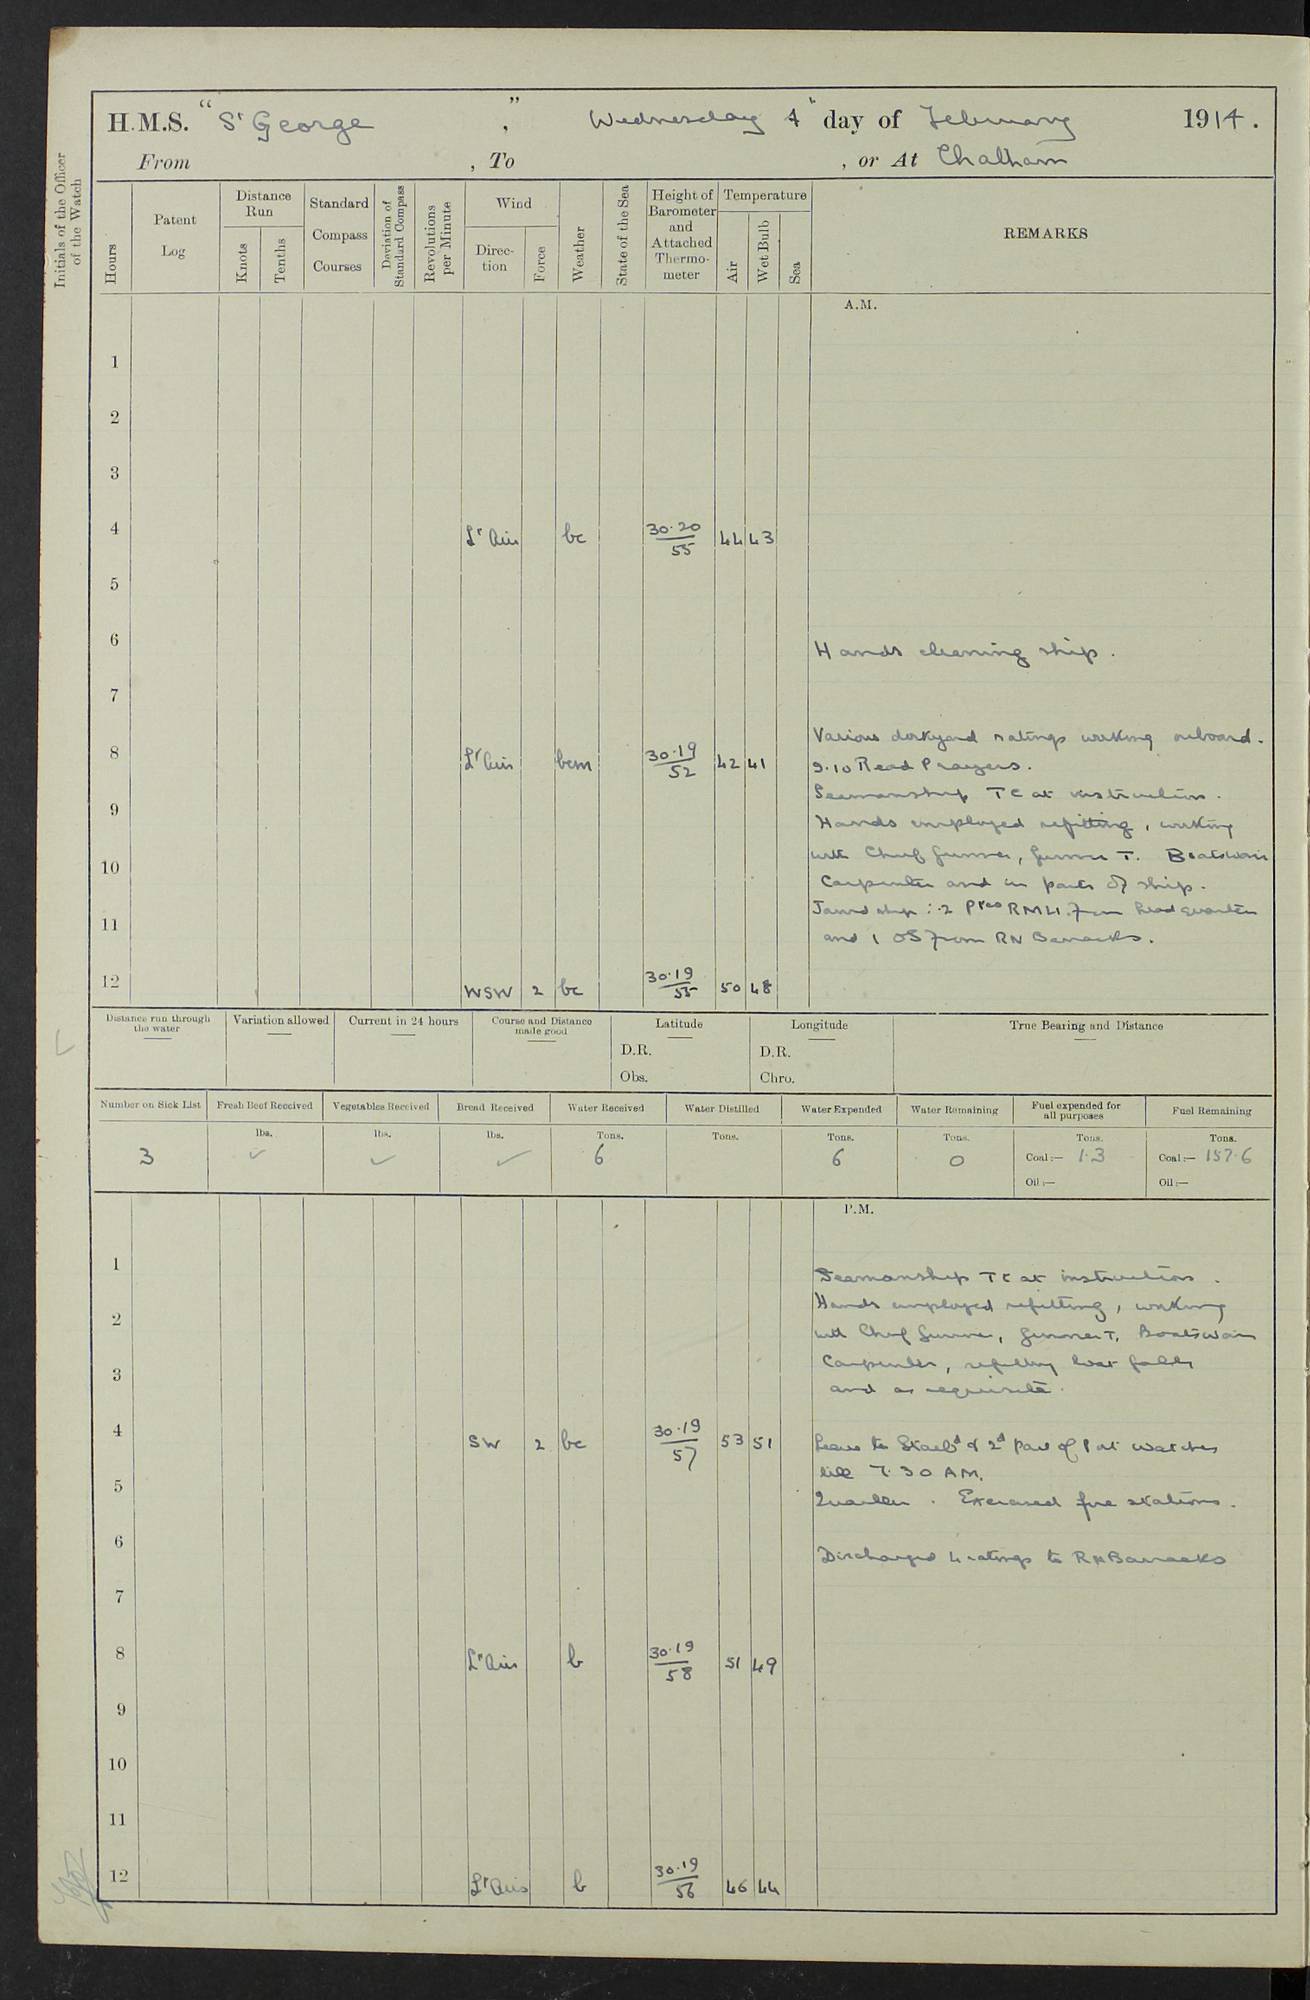 H.M.S. "St George", Wednesday 4th day of February 1914.
From , To , or At Chatham
Initials of the Officer of the Watch
Hours
Patent Log
Distance Run
Knots
Tenths
Standard Compass Courses
Deviation of Standard Compass
Revolutions per Minute
Wind
Direction
Force
Weather
State of the Sea
Height of Barometer and Attached Thermometer
Temperature
Air
Wet Bulb
Sea
REMARKS
A.M.
1
2
3
4 Lt Airs bc 30.20/55 44 43
5
6
Hands cleaning ship.
7
Various dockyard ratings working onboard.
8 Lt Airs bcm 30.19/52 42 41
9.10 Read Prayers.
Seamanship TC at instruction.
9
Hands employed refitting, working
with Chief Gunner, Gunner T. Boatswain
10
Carpenter and in parts of ship.
Joined ship: 2 Ptes RMLI. from headquarters
11
and 1 OS from RN Barracks.
12 WSW 2 bc 30.19/55 50 48
Distance run through the water
Variation allowed
Current in 24 hours
Course and Distance made good
Latitude
D.R.
Obs.
Longitude
D.R.
Chro.
True Bearing and Distance
Number on Sick List
Fresh Beef Received
Vegetables Received
Bread Received
Water Received
Water Distilled
Water Expended
Water Remaining
Fuel expended for all purposes
Fuel Remaining
3
lbs. ✓
lbs. ✓
lbs. ✓
Tons. 6
Tons.
Tons. 6
Tons. 0
Tons. Coal:— 1.3
Oil:—
Tons. Coal:— 157.6
Oil:—
P.M.
1
Seamanship TC at instruction.
Hands employed refitting, working
2
with Chief Gunner, Gunner T, Boatswain
Carpenter, refitting boat falls
3
and as requisite.
4 SW 2 bc 30.19/57 53 51
Leave to Starbd & 2d part of Port watches
till 7.30 AM.
5
Quarters. Exercised fire stations.
6
Discharged 4 ratings to RN Barracks
7
8 Lt Airs b 30.19/58 51 49
9
10
11
12 Lt Airs b 30.19/56 46 44